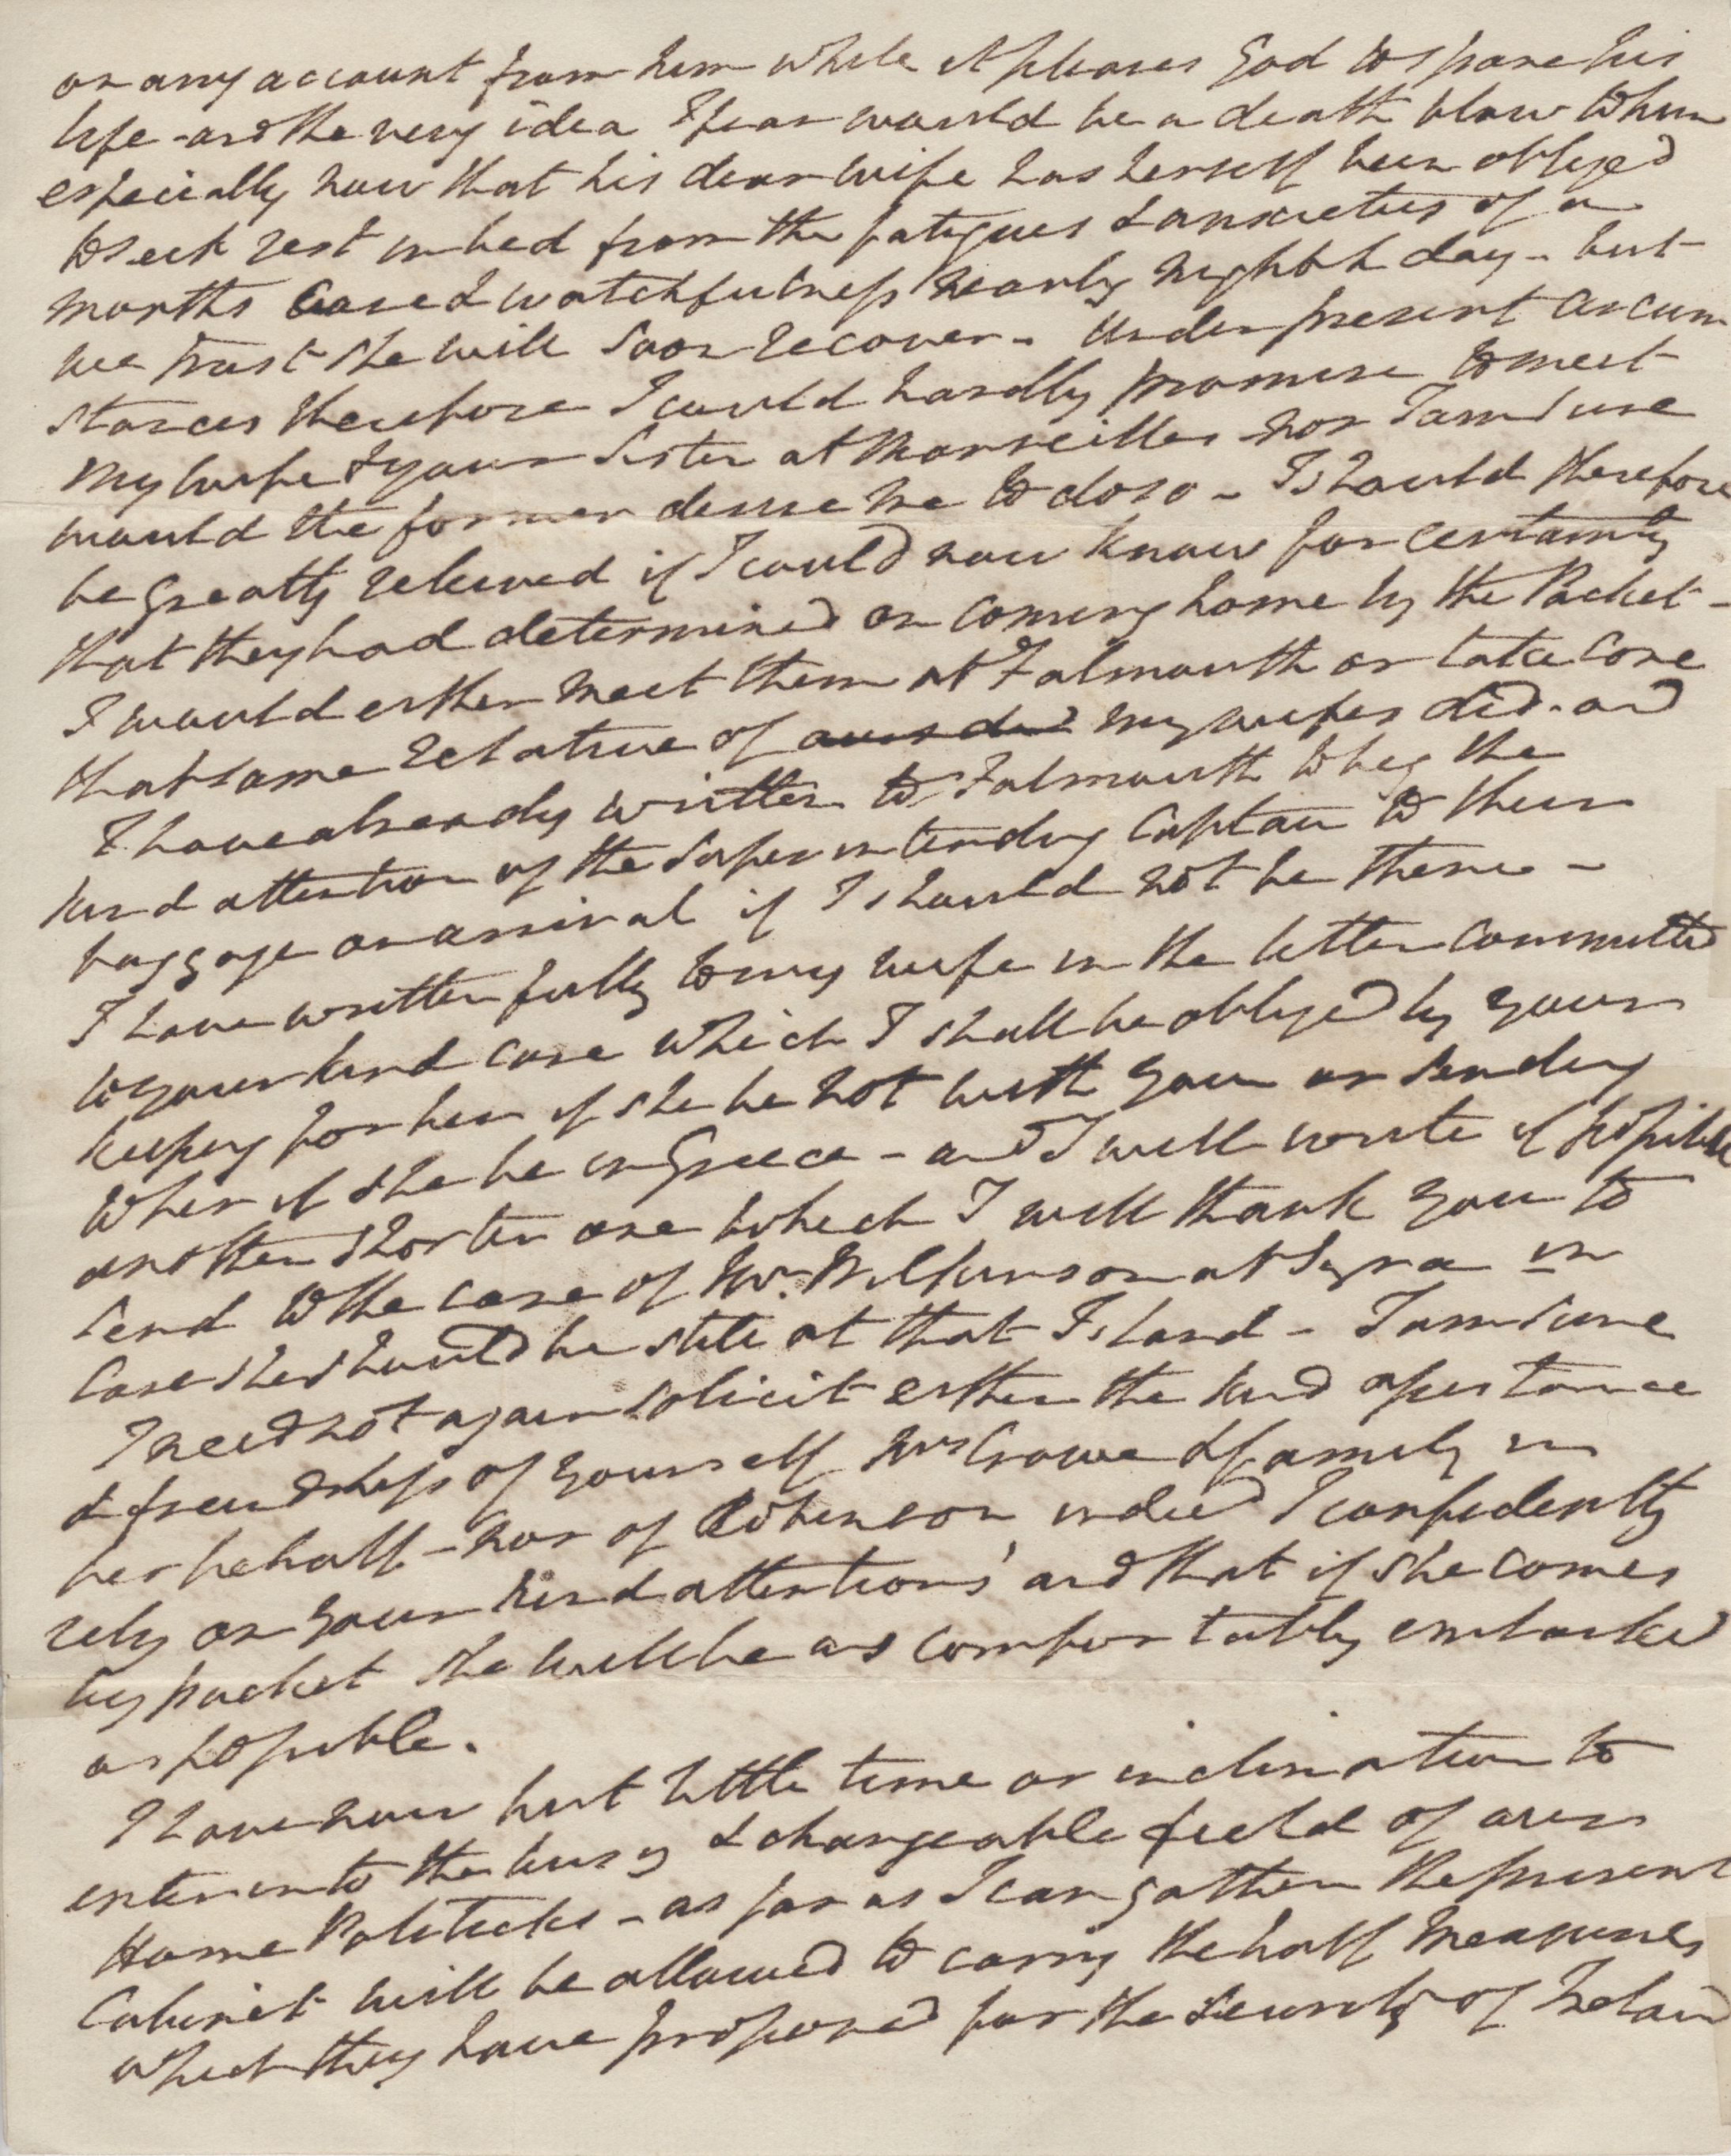 on any account from him while it pleases God to spare his
life - and the very idea I fear would be a death blow to him
especially now that his dear wife has herself been obliged
to seek rest in bed from the fatigues & anxieties of a
months care & watchfulness nearly night & day - but
we trust she will soon recover - Under present circum
stances therefore I could hardly promise to meet
my wife & your Sister at Marseilles nor I am sure
would the former desire me to do so - I should therefore
be greatly relieved if I could now know for certainty
that they had determined on coming home by the Packet -
I would either meet them at Falmouth or take care
that some relative of my wifes did - and
I have already written to Falmouth to beg the
kind attention of the Superintending Captain to their
baggage on arrival if I should not be there -
I have written fully to my wife in the letter committed
to your kind care which I shall be obliged by your
keeping for her if she be not with you or sending
to her if she be in Greece - and I will write if possible
another shorter one which I will thank you to
send to the care of Mr. Wilkinson at Syra in
case she should be still at that Island - I am sure
I need not again solicit either the kind assistance
& friendship of yourself Mrs Crowe & family in
her behalf - nor of Robinson indeed I confidently
rely on your kind attentions and that if she comes
by packet she will be as comfortably embarked
as possible.
I have now but little time or inclination to
enter into the busy & changeable field of our
Home Politicks - as far as I can gather the present
Cabinet will be allowed to carry the half measures
which they have proposed for the security of Ireland